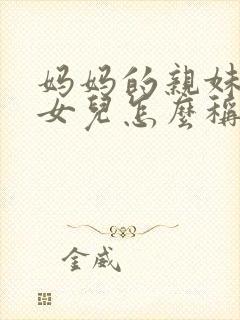 妈妈的親妹
女兒怎麼稱
金威